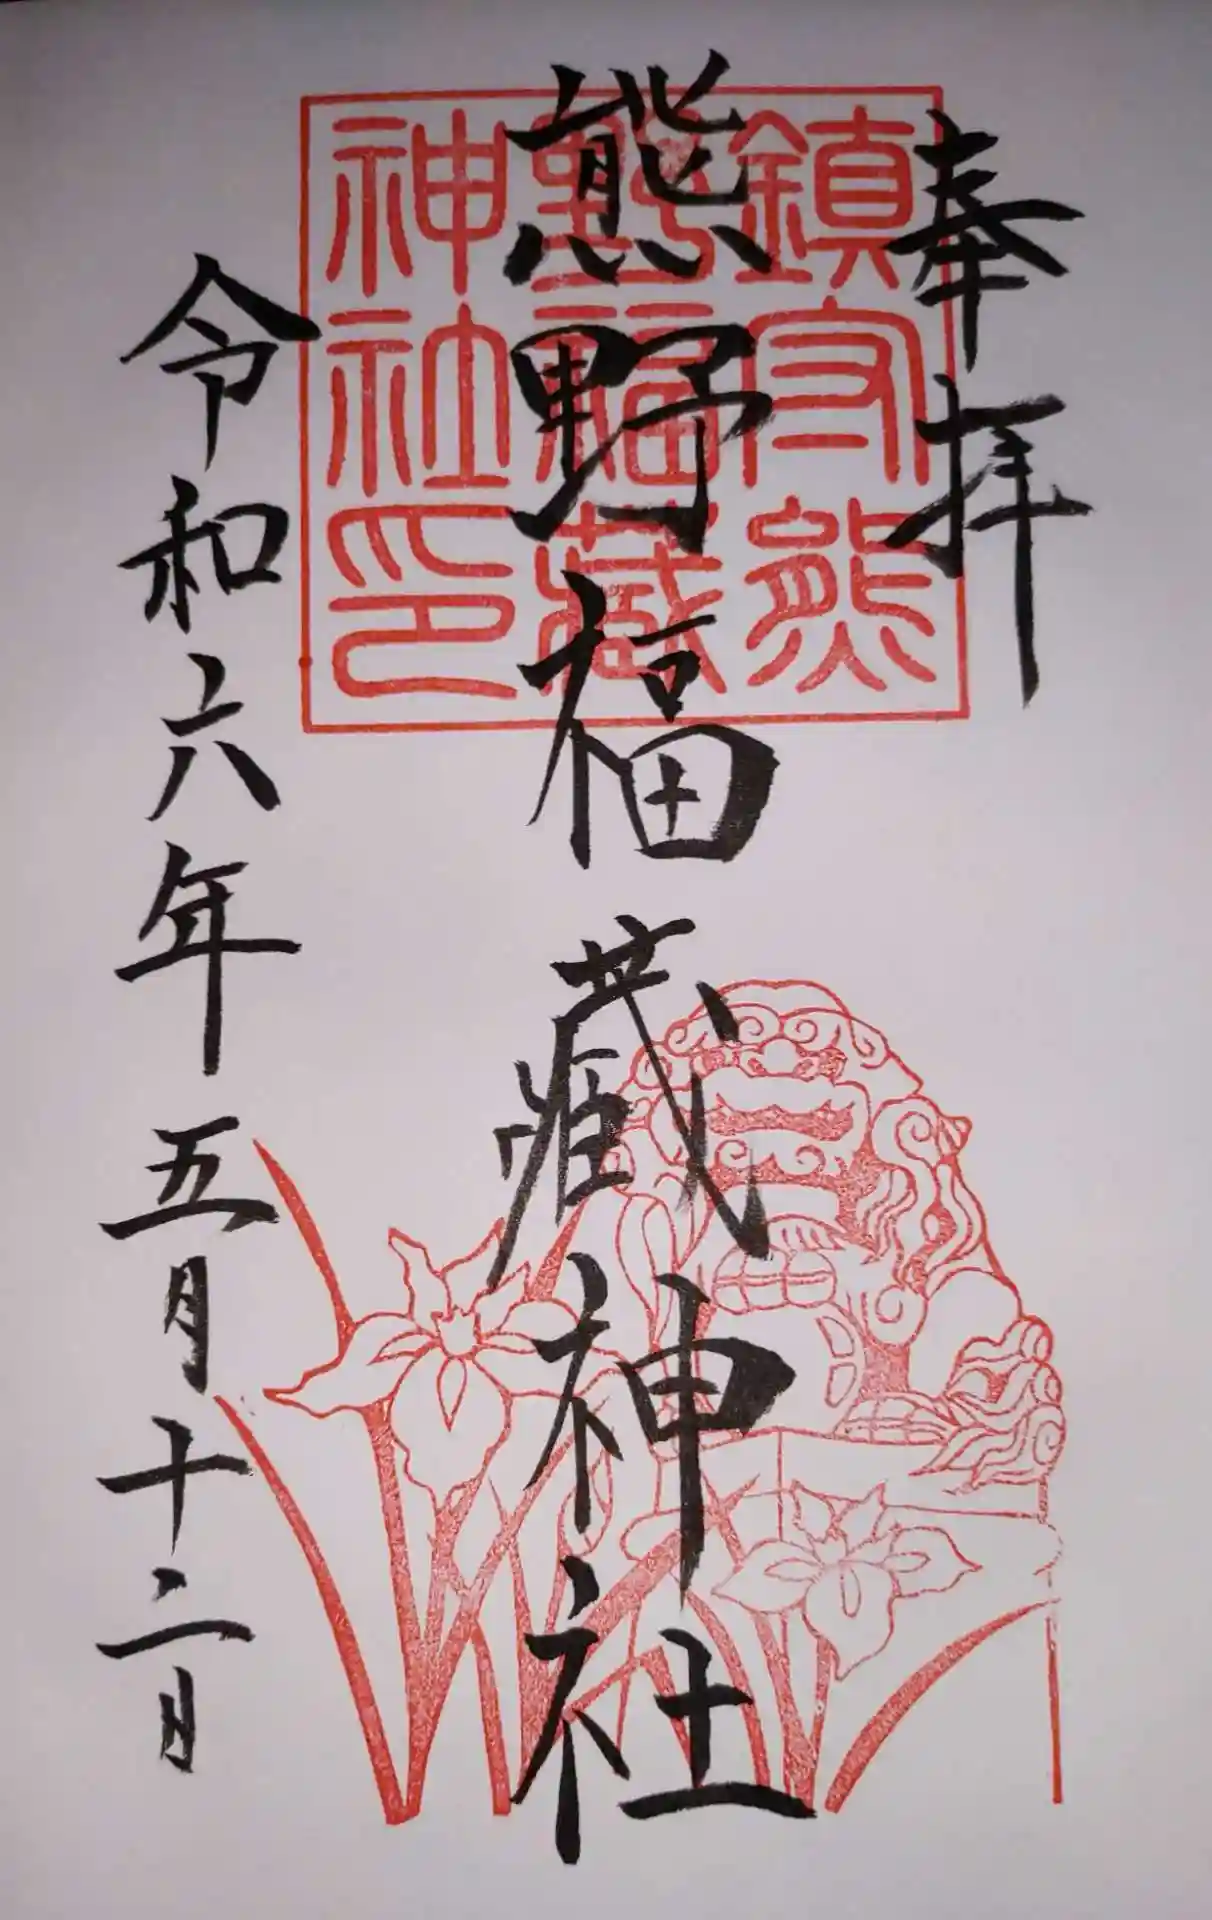 奉拝
熊野福藏神社
令和六年五月十二日
鎮守熊
野福藏
神社印